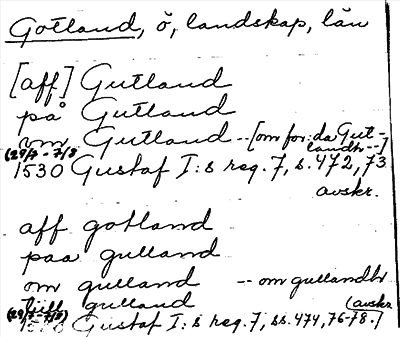 Gotland, ö, landskap, län
[aff] Gutland
på Gutland
om Gutland -- [om for:da Gut-
landh --]
(29/7 - 7/8)
1530 Gustaf I:s reg. 7, s. 472, 73
avskr.
aff gotland
paa gulland
om gulland -- om gullandh
till gulland (avskr.
(29/7 - 7/8)
1530 Gustaf I:s reg. 7, ss. 474, 76-78.]